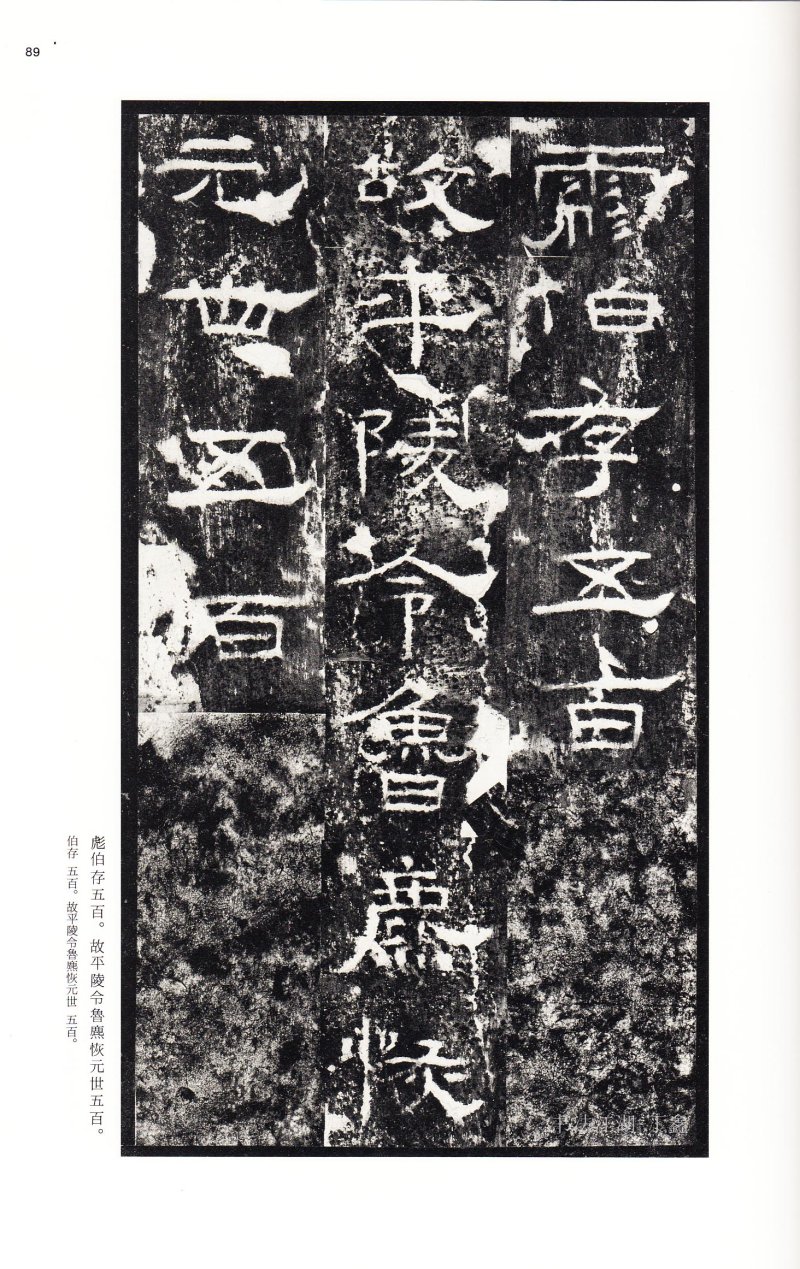 89
彪伯存五百
故平陵令魯麃恢
元世五百
彪伯存五百。故平陵令魯麃恢元世五百。
伯存 五百。故平陵令魯麃恢元世 五百。